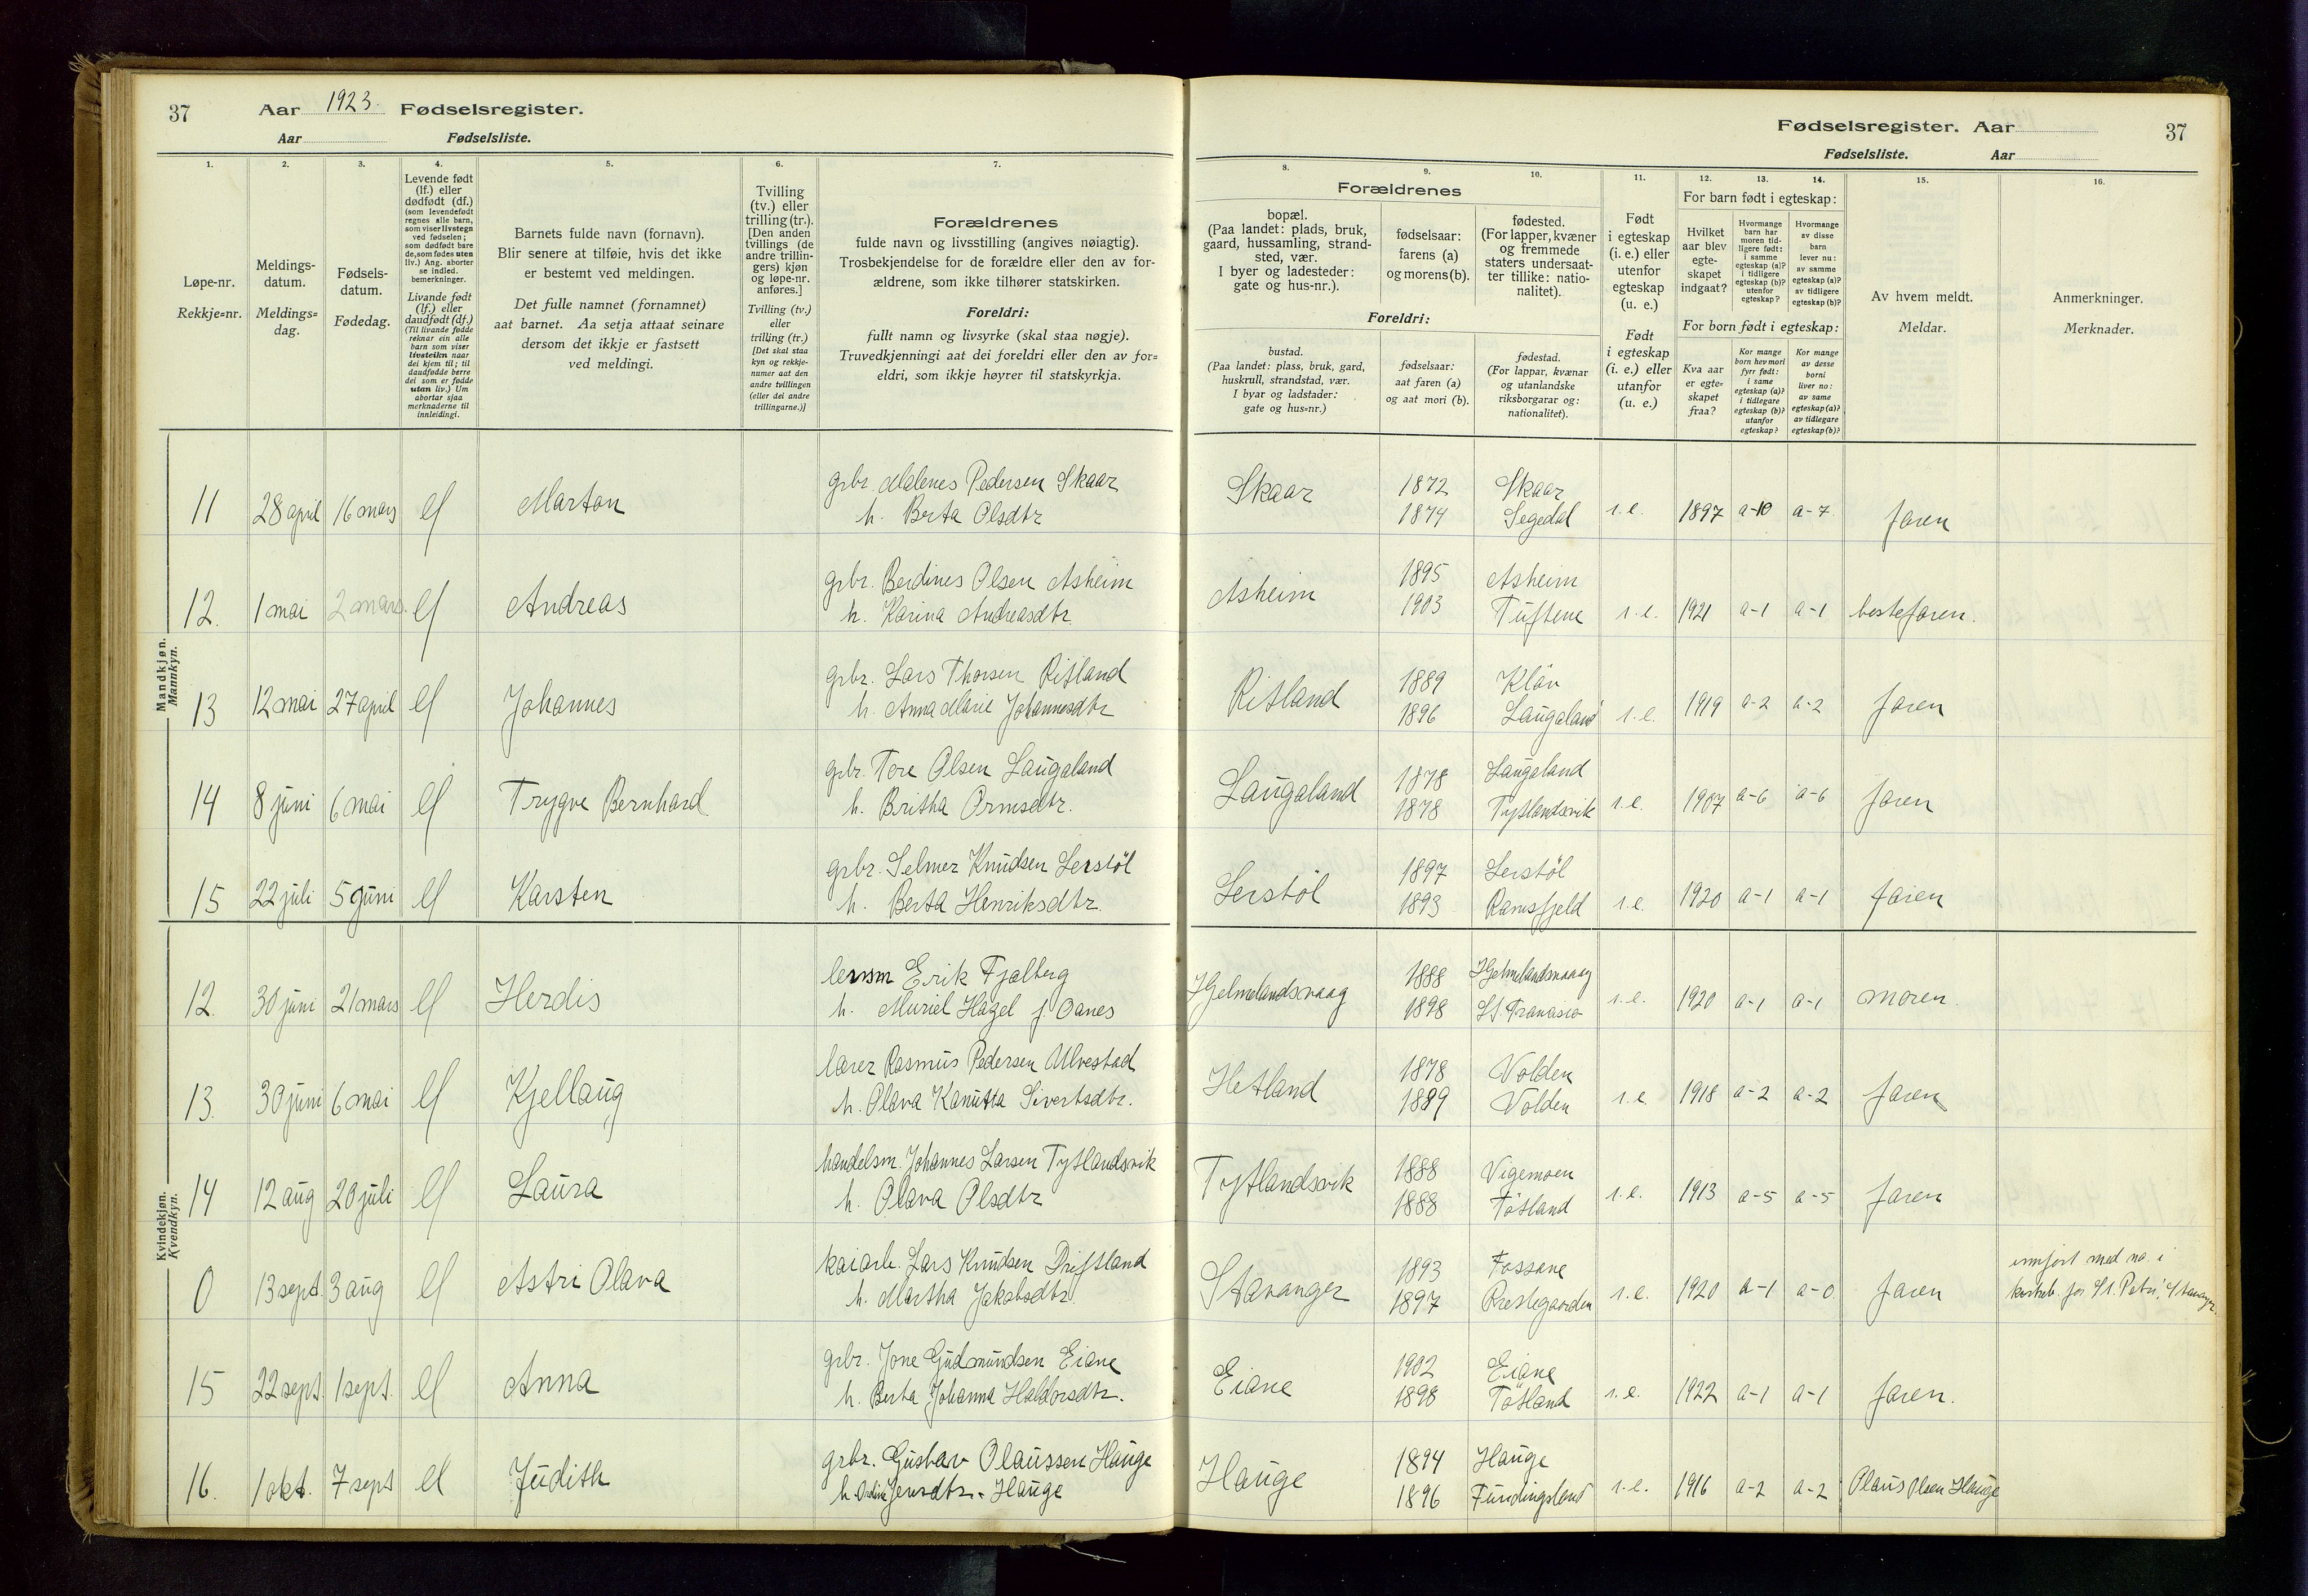 37 Aar 1923. Fødselsregister.
Aar Fødselsliste.
Fødselsregister. Aar 37
Fødselsliste. Aar
1. 2. 3. 4. 5. 6. 7.
Løpe-nr.
Rekkje=nr.
Meldings-
datum.
Meldings=
dag.
Fødsels-
datum.
Fødedag.
Levende født
(lf.) eller
dødfødt (df.)
(som levendefødt
regnes alle barn,
som viser livstegn
ved fødselen;
som dødfødt bare
de, som fødes uten
liv.) Ang. aborter
se indled.
bemerkninger.
Livande født
(lf.) eller
daudfødt (df.)
(Til livande fødde
reknar ein alle
barn som viser
livsteikn naar
dei kjem til; til
daudfødde berre
dei som er fødde
utan liv.) Um
abortar sjaa
merknaderne til
innleidingi.
Barnets fulde navn (fornavn).
Blir senere at tilføie, hvis det ikke
er bestemt ved meldingen.
Det fulle namnet (fornamnet)
aat barnet. Aa setja attaat seinare
dersom det ikkje er fastsett
ved meldingi.
Tvilling
(tv.) eller
trilling (tr.).
[Den anden
tvillings (de
andre trillin-
gers) kjøn
og løpe-nr.
anføres.]
Tvilling (tv.)
eller
trilling (tr.)
[Det skal staa
kyn og rekkje-
numer aat den
andre tvillingen
(eller dei andre
trillingarne.)]
Forældrenes
fulde navn og livsstilling (angives nøiagtig).
Trosbekjendelse for de forældre eller den av for-
ældrene, som ikke tilhører statskirken.
Foreldri:
fullt namn og livsyrke (skal staa nøgje).
Truvedkjenningi aat dei foreldri eller den av for=
eldri, som ikkje høyrer til statskyrkja.
8. 9. 10. 11. 12. 13. 14. 15. 16.
Forældrenes
bopæl.
(Paa landet: plads, bruk,
gaard, hussamling, strand-
sted, vær.
I byer og ladesteder:
gate og hus-nr.).
fødselsaar:
farens (a)
og morens (b).
fødested.
(For lapper, kvæner
og fremmede
staters undersaat-
ter tillike: natio-
nalitet).
Foreldri:
bustad.
(Paa landet: plass, bruk, gard,
huskrull, strandstad, vær.
I byar og ladstader:
gate og hus-nr.)
fødselsaar:
aat faren (a)
og aat mori (b).
fødestad.
(For lappar, kvænar
og utanlandske
riksborgarar og:
nationalitet).
Født
i egteskap
(i. e.) eller
utenfor
egteskap
(u. e.)
Født
i egteskap
(i. e.) eller
utanfor
egteskap
(u. e.)
For barn født i egteskap:
Hvilket
aar blev
egte-
skapet
indgaat?
Hvormange
barn har
moren tid-
ligere født:
i samme
egteskap (a)?
i tidligere
egteskap (b)?
utenfor
egteskap?
Hvormange
av disse
barn
lever nu:
av samme
egteskap (a)?
av tidligere
egteskap (b)?
For born født i egteskap:
Kva aar
er egte-
skapet
fraa?
Kor mange
born hev mori
fyrr født:
i same
egteskap (a)?
i tidlegare
egteskap (b)?
utanfor
egteskap?
Kor mange
av desse
borni
liver no:
av same
egteskap (a)?
av tidlegare
egteskap (b)?
Av hvem meldt.
Meldar.
Anmerkninger.
Merknader.
Mandkjøn.
Mannkyn.
11 28 april 16 mars lf Marton grbr. Malenes Pedersen Skaar Skaar 1872 Skaar
h. Berta Olsdtr 1874 Segedal i.e. 1897 a-10 a-7 faren
12. 1 mai 2 mars. lf Andreas grbr. Berdines Olsen Asheim Asheim 1895 Asheim
h. Karina Andreasdtr. 1903 Tuftene i.e. 1921 a-1 a-1 bestefaren.
13 12 mai 27 april lf Johannes grbr. Lars Thorsen Ritland Ritland 1889 Kløv
h. Anna Marie Johannesdtr 1896 Laugaland i.e. 1919 a-2 a-2 faren
14 8 juni 6 mai lf Trygve Bernhard grbr. Tore Olsen Laugaland Laugaland 1878 Laugaland
h. Britha Ormsdtr. 1878 Tytlandsvik i.e. 1907 a-6 a-6 faren
15 22 juli 5 juni lf Karsten grbr. Selmer Knudsen Lerstöl Lerstöl 1897 Lerstöl
h. Berta Henriksdtr. 1893 Ramsfjeld i.e. 1920 a-1 a-1 faren
Kvindekjøn.
Kvendkyn.
12. 30 juni 21 mars lf Herdis lensm Erik Fjelberg Hjelmelandsvaag 1888 Hjelmelandsvaag
h. Muriel Hazel f. Oanes 1898 i.e. 1920 a-1 a-1 moren.
13. 30 juni 6 mai lf Kjellaug lærer Rasmus Pedersen Ulvestad Hetland 1878 Volden
h. Olava Kanutta Sivertsdtr. 1889 Volden i.e. 1918 a-2 a-2 faren
14 12 aug 20 juli lf Laura handelsm. Johannes Larsen Tytlandsvik Tytlandsvik 1888 Vigemoen
h. Olava Olsdtr 1888 Tötland i.e. 1913 a-5 a-5 faren
0 13 sept. 3 aug lf Astri Olava kaiarb. Lars Knudsen Driftland Stavanger 1893 Fossane
h. Martha Jakobsdtr. 1897 Prestegaarden i.e. 1920 a-1 a-0 faren innført med no. i
kirkeb. for St. Petri, Stavanger.
15 22 sept. 1 sept. lf Anna grbr. Jone Gudmundsen Eiane Eiane 1902 Eiane
h. Berta Johanna Haldorsdtr. 1898 Tötland i.e. 1922 a-1 a-1 faren.
16. 1 okt. 7 sept lf Judith grbr. Gustav Olaussen Hauge Hauge 1894 Hauge
h. Jensdtr. Hauge 1896 Fundingsland i.e. 1916 a-2 a-2 Olaus Olsen Hauge